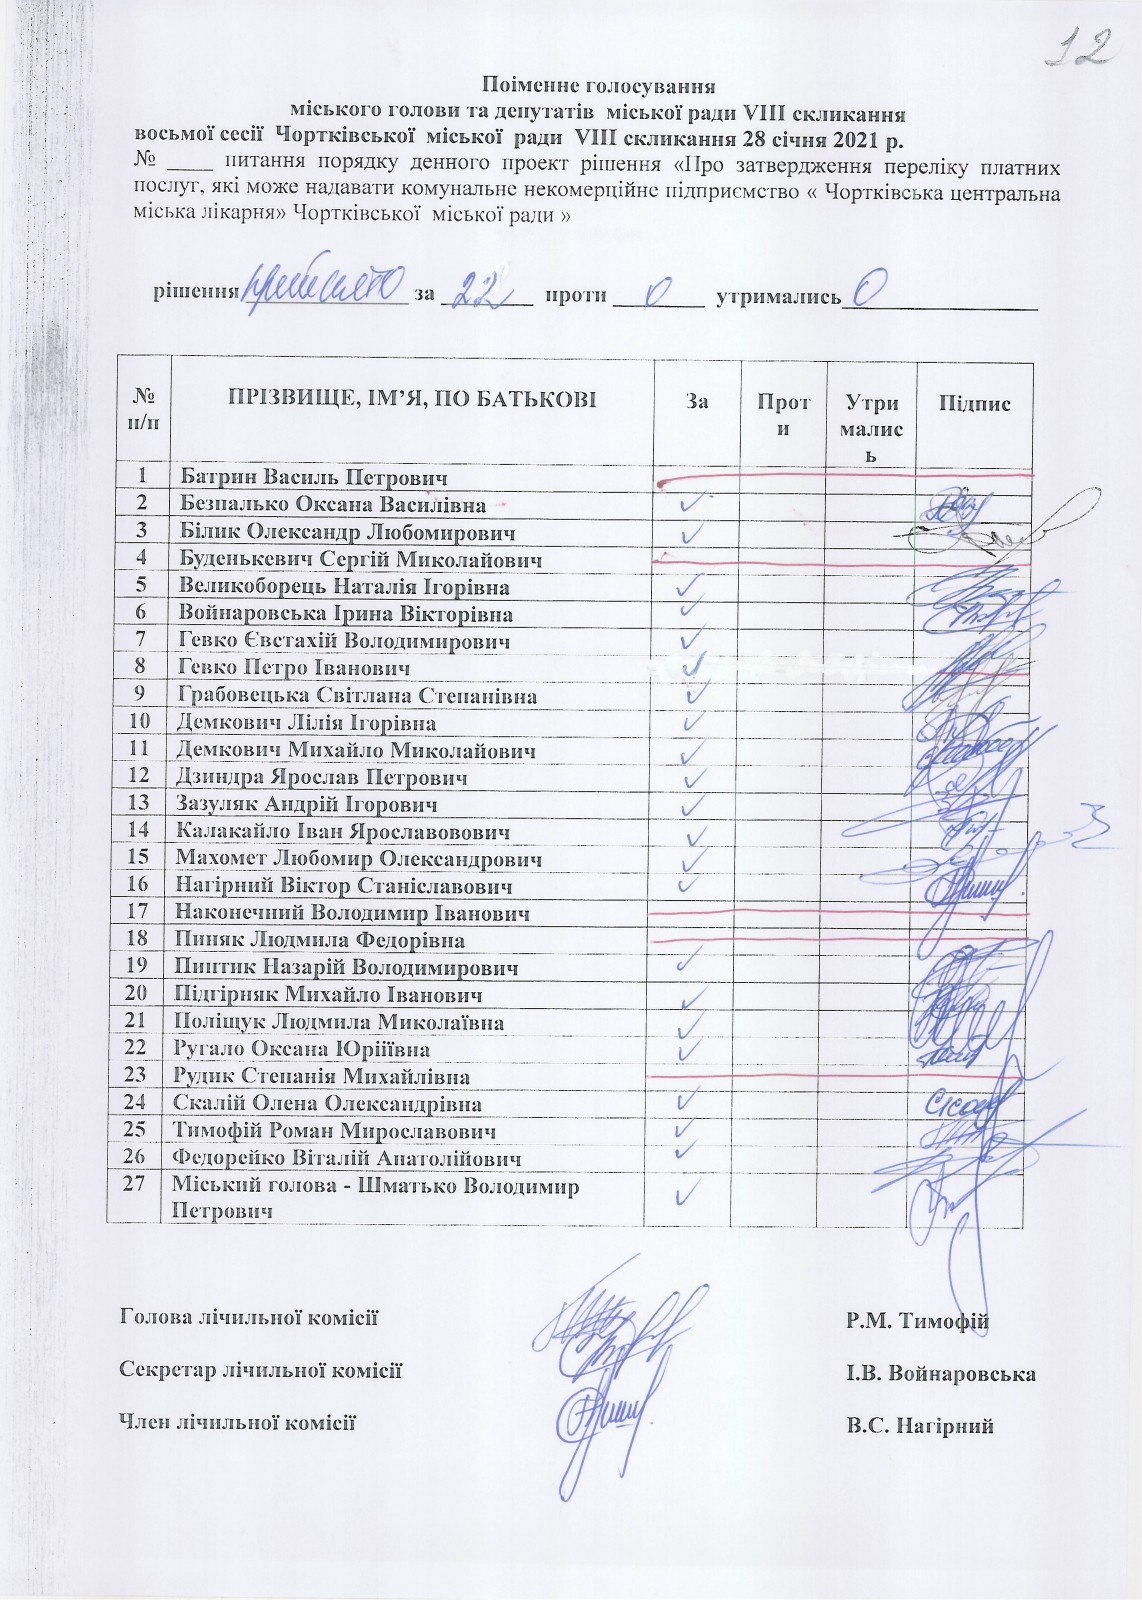 12
Поіменне голосування
міського голови та депутатів міської ради VIII скликання
восьмої сесії Чортківської міської ради VIII скликання 28 січня 2021 р.
№ ____ питання порядку денного проект рішення «Про затвердження переліку платних
послуг, які може надавати комунальне некомерційне підприємство « Чортківська центральна
міська лікарня» Чортківської міської ради »
рішення прийнято за 22 проти 0 утримались 0
№ п/п ПРІЗВИЩЕ, ІМ’Я, ПО БАТЬКОВІ За Проти Утрималися Підпис
1 Батрин Василь Петрович
2 Безпалько Оксана Василівна ✓
3 Білик Олександр Любомирович ✓
4 Буденькевич Сергій Миколайович
5 Великоборець Наталія Ігорівна ✓
6 Войнаровська Ірина Вікторівна ✓
7 Гевко Євстахій Володимирович ✓
8 Гевко Петро Іванович ✓
9 Грабовецька Світлана Степанівна ✓
10 Демкович Лілія Ігорівна ✓
11 Демкович Михайло Миколайович ✓
12 Дзиндра Ярослав Петрович ✓
13 Зазуляк Андрій Ігорович ✓
14 Калакайло Іван Ярославовович ✓
15 Махомет Любомир Олександрович ✓
16 Нагірний Віктор Станіславович ✓
17 Наконечний Володимир Іванович
18 Пиняк Людмила Федорівна
19 Пинтик Назарій Володимирович ✓
20 Підгірняк Михайло Іванович ✓
21 Поліщук Людмила Миколаївна ✓
22 Ругало Оксана Юріїівна ✓
23 Рудик Степанія Михайлівна
24 Скалій Олена Олександрівна ✓
25 Тимофій Роман Мирославович ✓
26 Федорейко Віталій Анатолійович ✓
27 Міський голова - Шматько Володимир
Петрович ✓
Голова лічильної комісії Р.М. Тимофій
Секретар лічильної комісії І.В. Войнаровська
Член лічильної комісії В.С. Нагірний